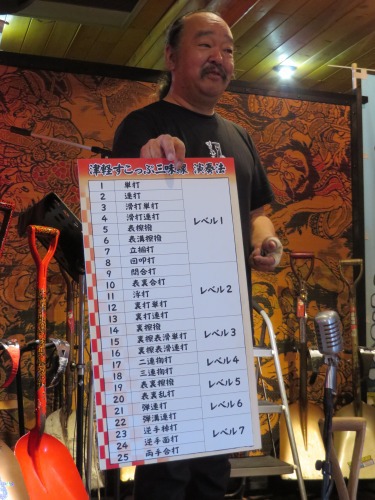 津軽すこっぷ三味線 演奏法
1 単打
2 連打
3 滑打単打
4 滑打連打
5 表擦撥
6 表溝擦撥
7 立揃打
8 回叩打
9 間合打
10 表裏合打
11 浮打
12 裏打単打
13 裏打連打
14 裏擦撥
15 裏擦表滑単打
16 裏擦表滑連打
17 二連掬打
18 三連掬打
19 表裏擦撥
20 表裏乱打
21 弾連打
22 弾溝連打
23 逆手棹打
24 逆手面打
25 両手合打
レベル1
レベル2
レベル3
レベル4
レベル5
レベル6
レベル7